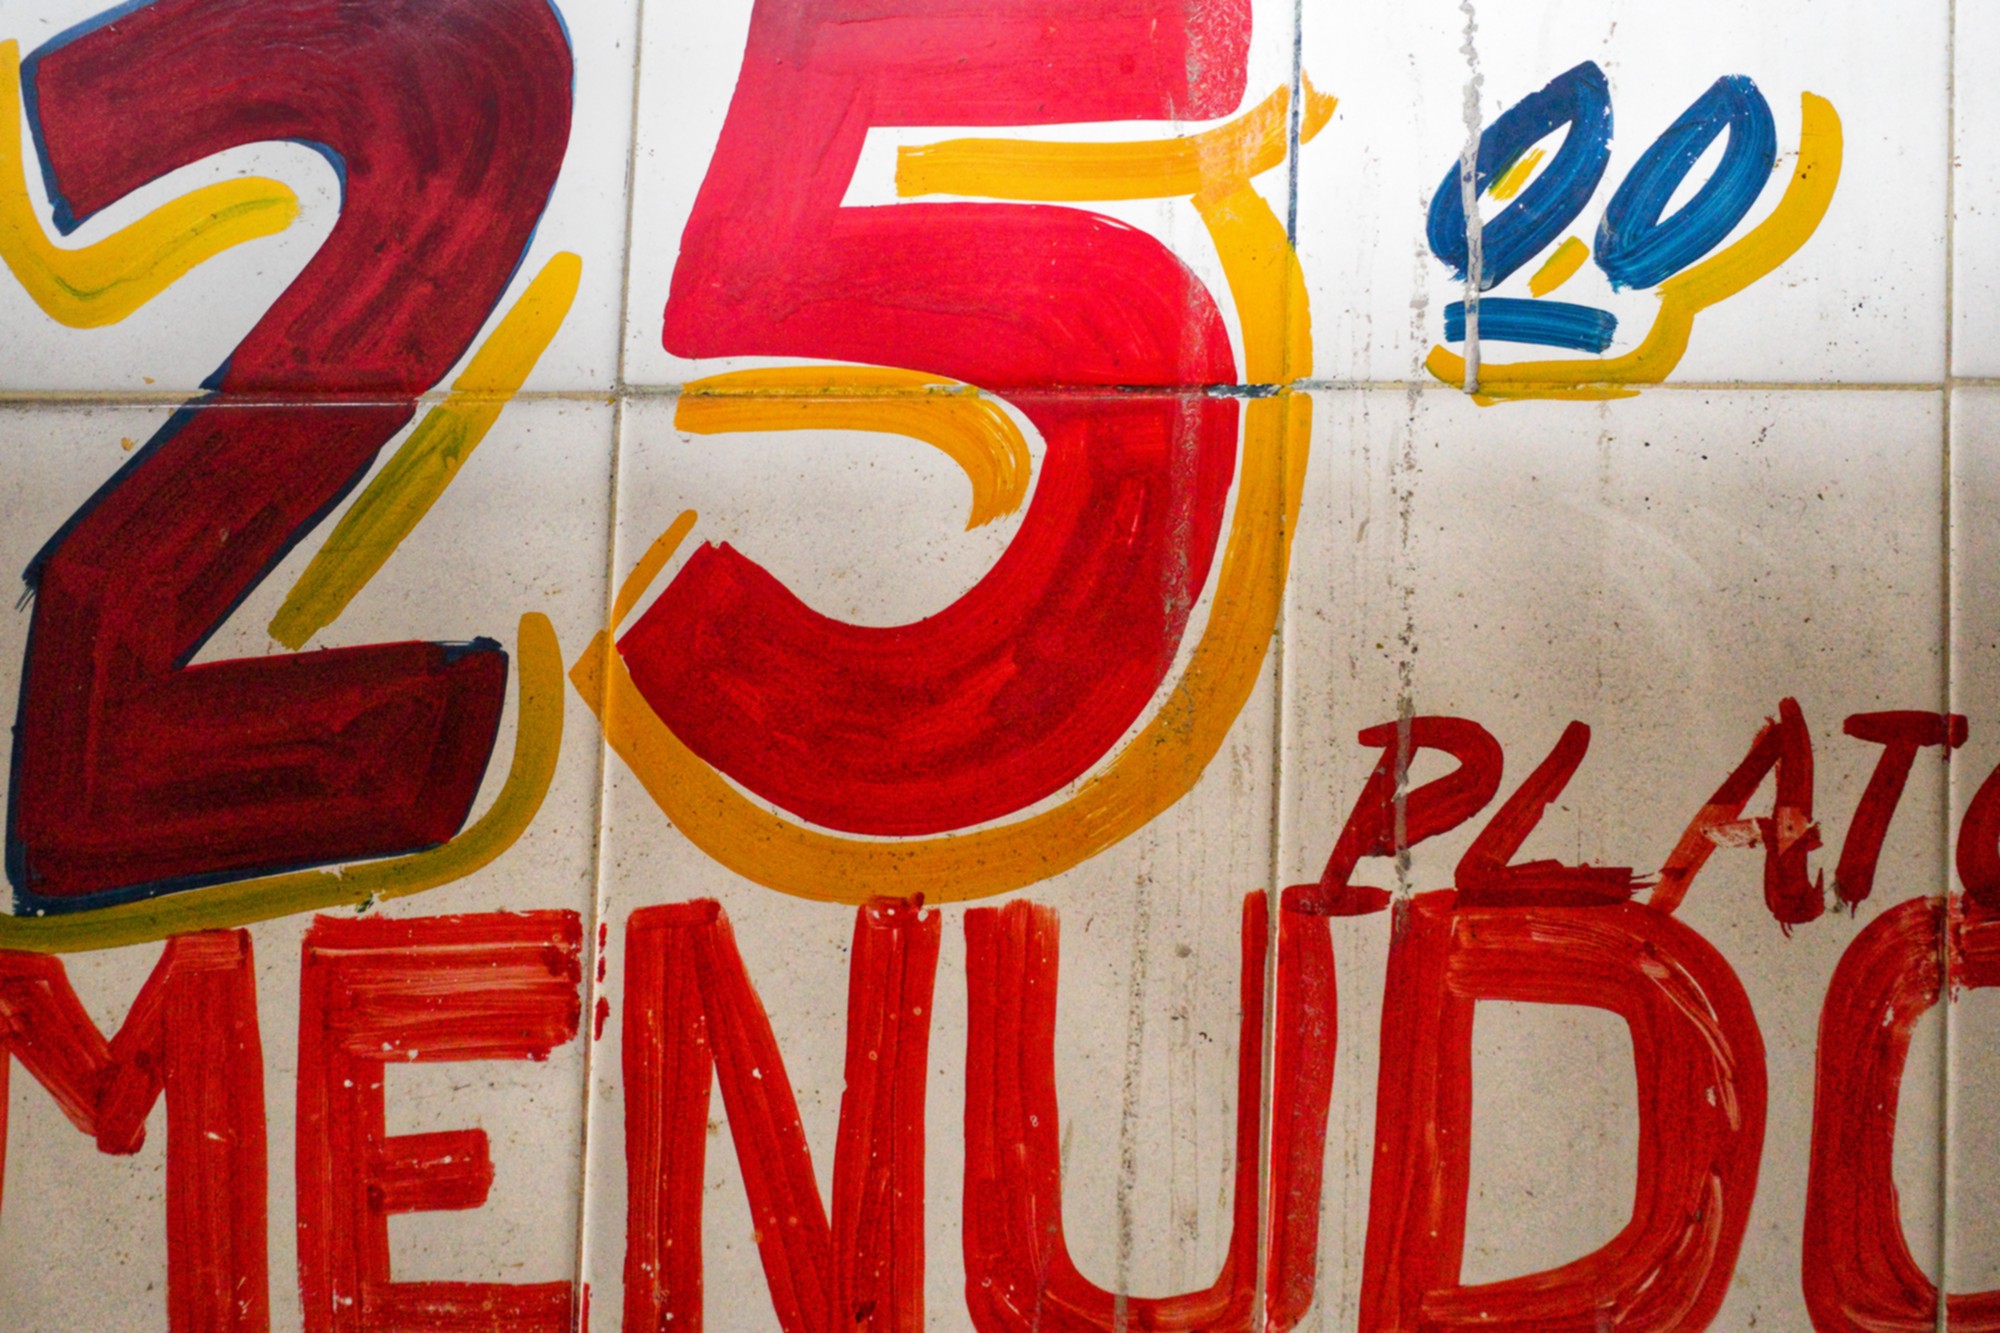 25 00
PLATO
MENUDO